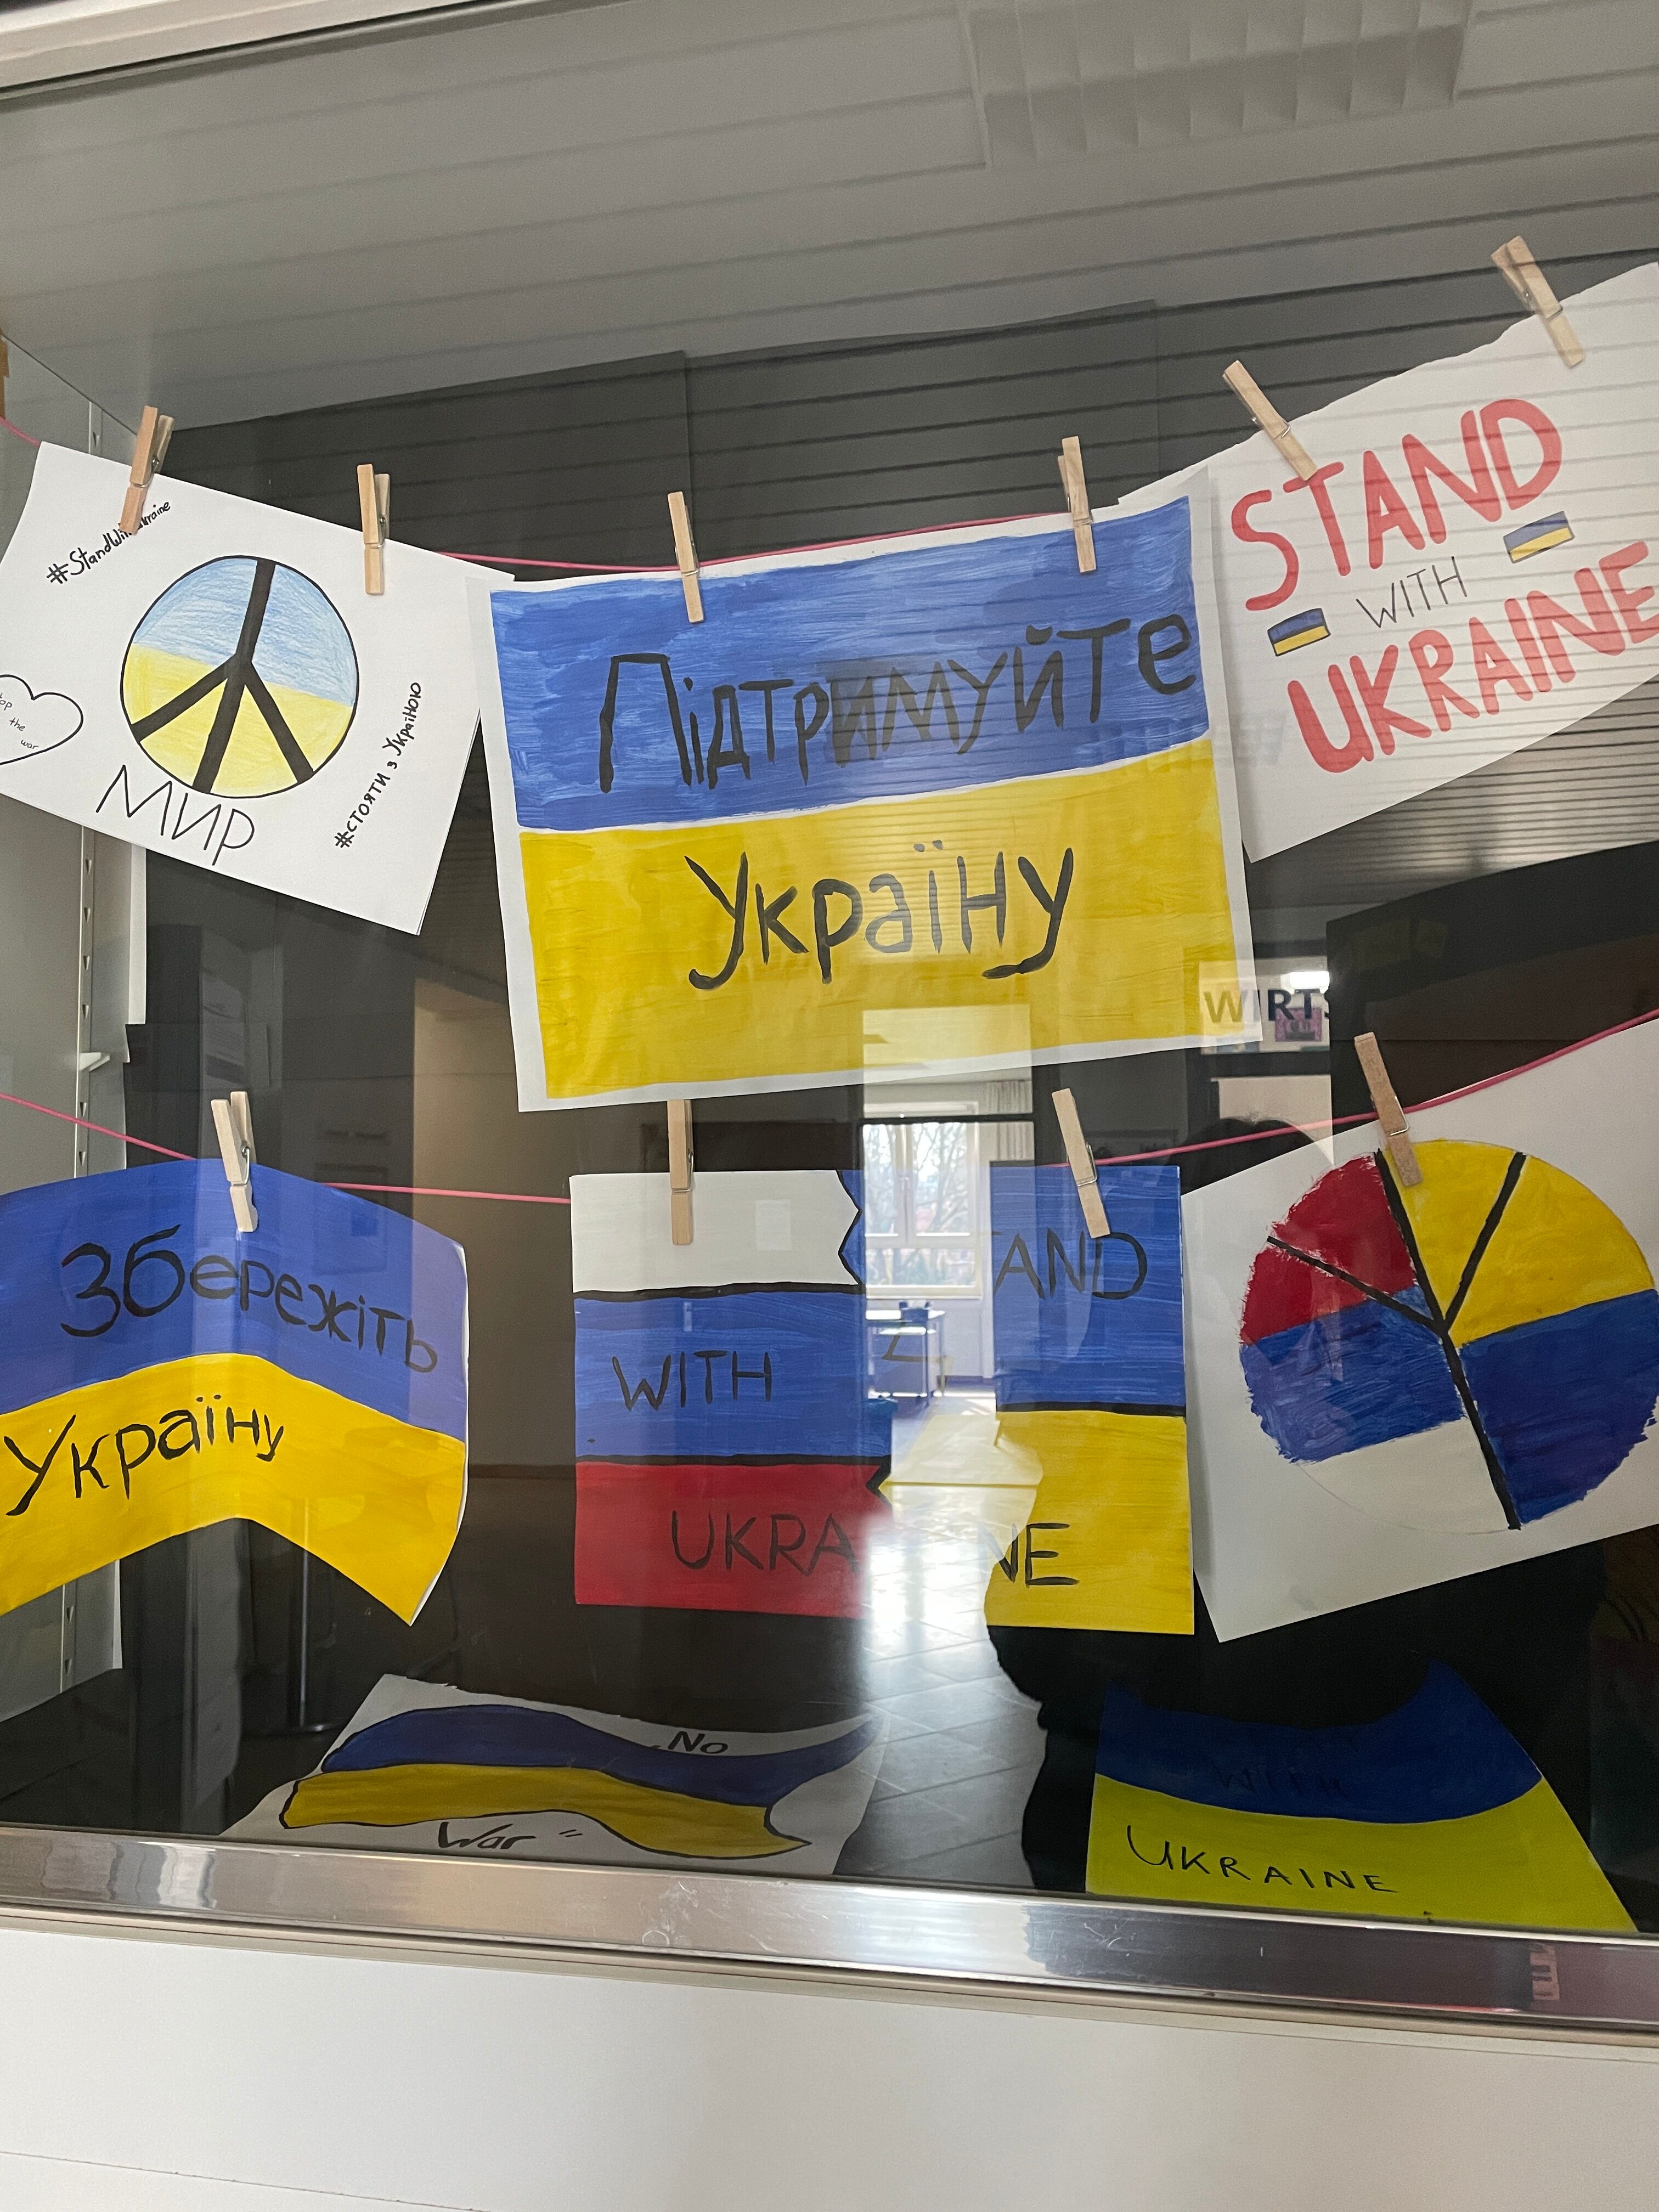 #StandWith Ukraine
Stop
the
war
МИР
#СТОЯТИ з УкраїНОЮ
Підтримуйте
Україну
STAND
WITH
UKRAINE
WIRTS
Збережіть
Україну
AND
WITH
UKRA NE
No
War
WITH
UKRAINE